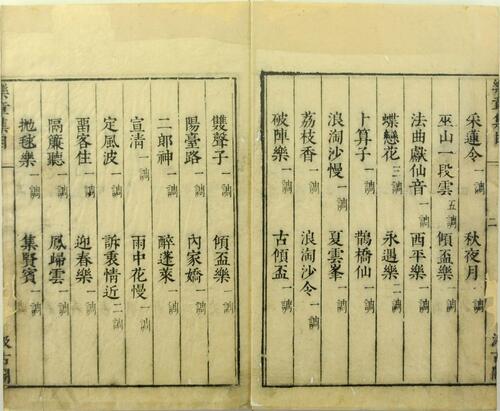 采蓮令一調 秋夜月一調
巫山一段雲五調 傾盃樂一調
法曲獻仙音一調 西平樂一調
蝶戀花三調 永遇樂二調
卜算子一調 鵲橋仙一調
浪淘沙慢一調 夏雲峯一調
荔枝香一調 浪淘沙令一調
破陣樂一調 古傾盃一調
雙聲子一調 傾盃樂一調
陽臺路一調 內家嬌一調
二郎神一調 醉蓬萊一調
宣清一調 雨中花慢一調
定風波一調 訴衷情近二調
畱客住一調 迎春樂一調
隔簾聽一調 鳳歸雲一調
拋毬樂一調 集賢賓一調
樂章集目 汲古閣